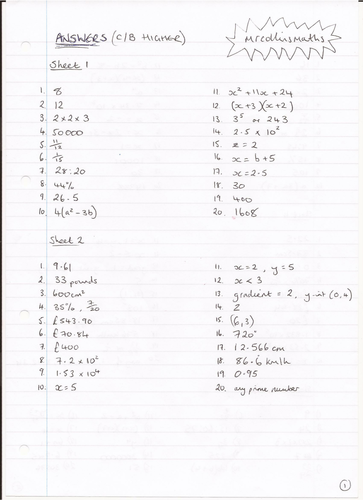 ANSWERS (C/B HIGHER)
mrcollinsmaths
Sheet 1
1. 8
2. 12
3. 2 x 2 x 3
4. 50000
5. 11/15
6. 1/15
7. 28:20
8. 44%
9. 26.5
10. 4(a² - 3b)
11 x² + 11x + 24
12. (x+3)(x+2)
13. 3⁵ or 243
14 2.5 x 10²
15 x = 2
16 x = b + 5
17. x = 2.5
18. 30
19. 400
20. 1608
Sheet 2
1. 9.61
2. 33 pounds
3. 600cm³
4. 35%, 7/20
5. £543.90
6. £70.84
7. £400
8 7.2 x 10²
9 1.53 x 10⁴
10. x = 5
11. x = 2, y = 5
12 x < 3
13. gradient = 2, y-int (0,4)
14 2
15. (6,3)
16. 720°
17. 12.566 cm
18. 86.6 km/h
19 0.95
20. any prime number
1